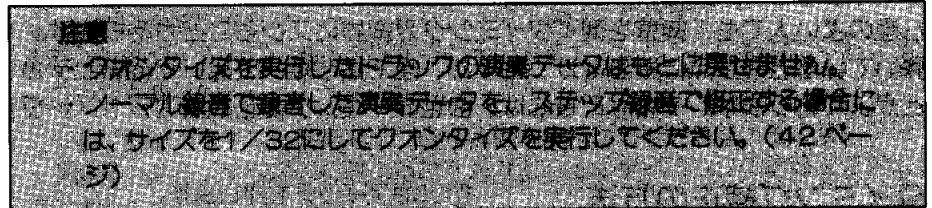 注意
・クオンタイズを実行したトラックの演奏データはもとに戻せません。
・ノーマル録音で録音した演奏データを、ステップ録音で修正する場合に
は、サイズを1/32にしてクオンタイズを実行してください。(42ペー
ジ)